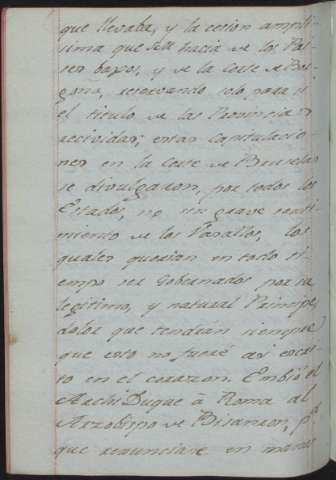 que llevaba, y la cesion ampli-
sima que se le hacia de los Pai-
ses bajos, y de la Corte de Bor-
goña, reservando solo para si
el titulo de las Provincias
recividas; estas capitulacio-
nes en la Corte de Bruselas
se divulgaron, por todos los
Estados, no sin grave senti-
miento de los Vasallos, los
quales querian en todo ti-
empo ser Gobernados por su
legitimo, y natural Principe,
dolor que tendran siempre
que esto no fuese asi escri-
to en el corazon. Embió el
Archi Duque à Roma al
Arzobispo de Bisanzon, p.ª
que renunciase en manos